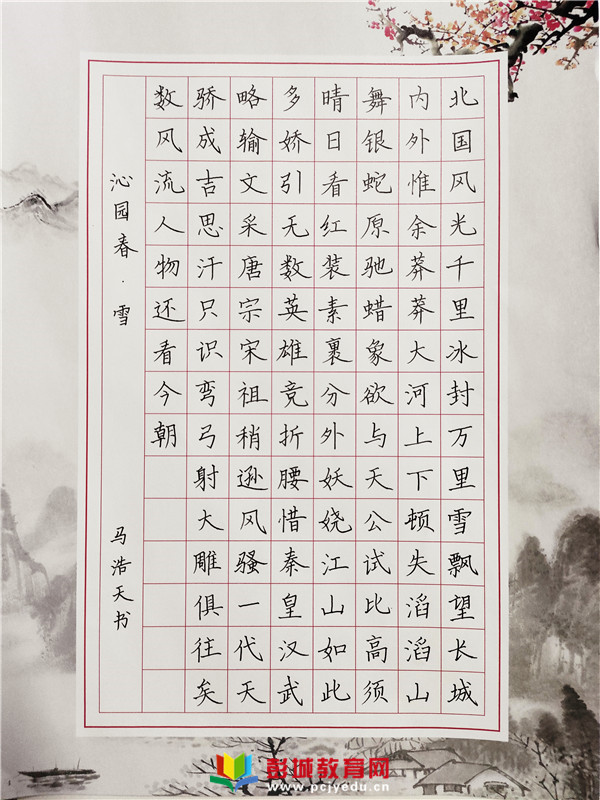 北国风光千里冰封万里雪飘望长城
内外惟余莽莽大河上下顿失滔滔山
舞银蛇原驰蜡象欲与天公试比高须
晴日看红装素裹分外妖娆江山如此
多娇引无数英雄竞折腰惜秦皇汉武
略输文采唐宗宋祖稍逊风骚一代天
骄成吉思汗只识弯弓射大雕俱往矣
数风流人物还看今朝
沁园春·雪 马浩天书
彭城教育网
www.pcjyedu.cn